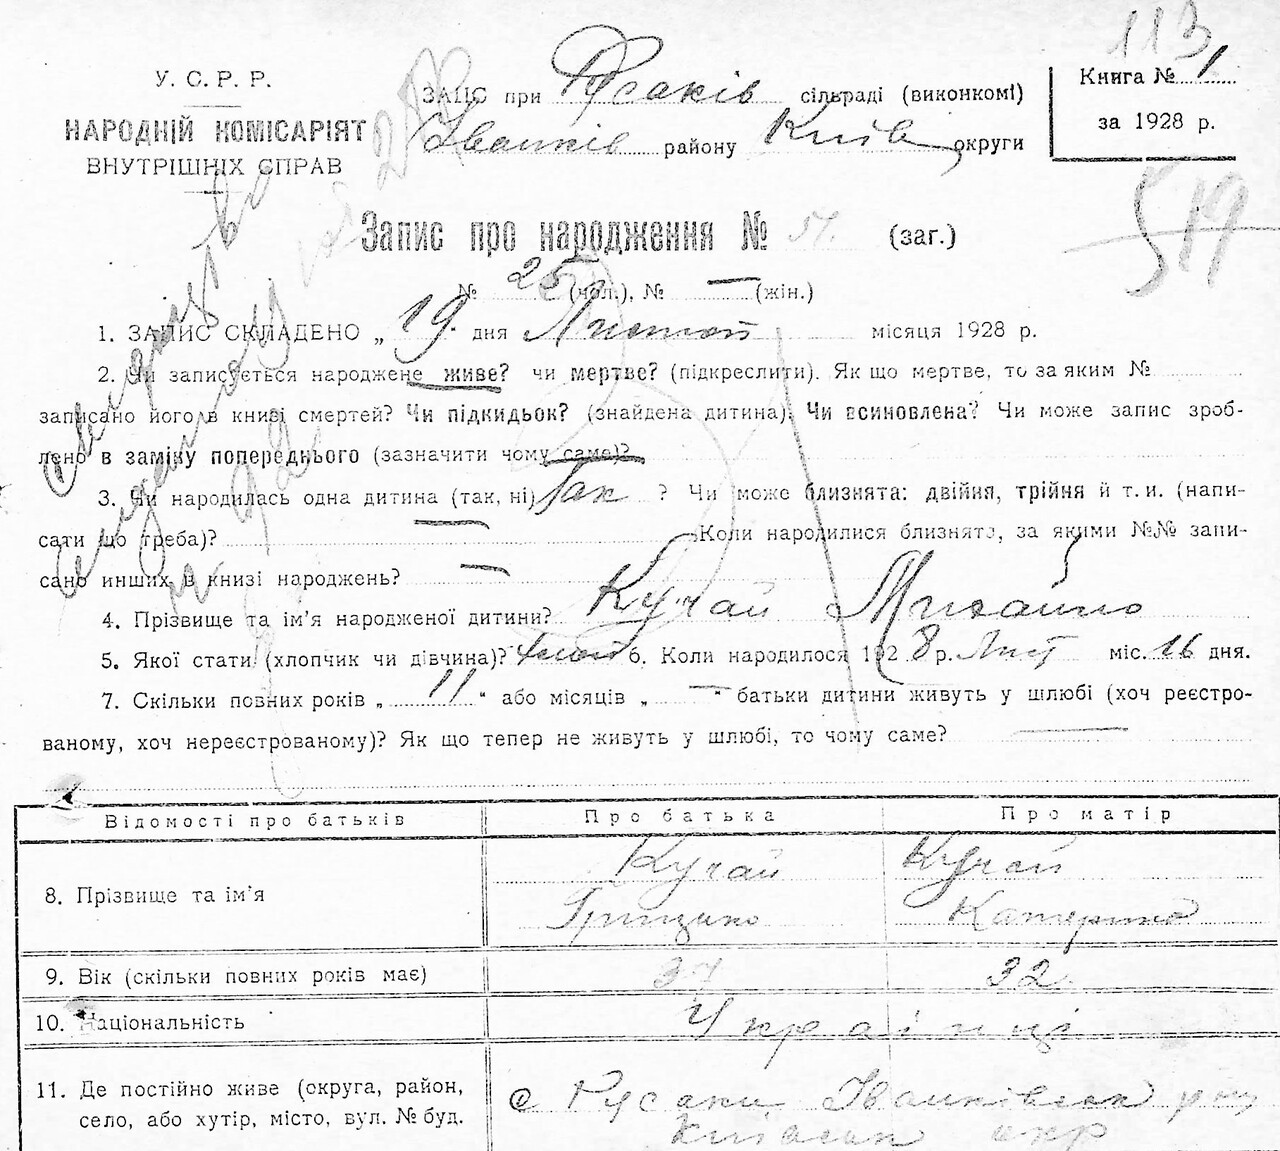 113
У. С. Р. Р.
НАРОДНІЙ КОМІСАРІЯТ
ВНУТРІШНІХ СПРАВ
ЗАПИС при сільраді (виконкомі)
Іванків району Київ округи
Книга № 1
за 1928 р.
519
Запис про народження № 51. (заг.)
№ 25 (чол.), № — (жін.)
1. ЗАПИС СКЛАДЕНО „ 19 дня Лютого місяця 1928 р.
2. Чи записується народжене живе? чи мертве? (підкреслити). Як що мертве, то за яким №
записано його в книзі смертей? Чи підкидьок? (знайдена дитина). Чи всиновлена? Чи може запис зроб-
лено в заміну попереднього (зазначити чому саме)?
3. Чи народилась одна дитина (так, ні) Так ? Чи може близнята: двійня, трійня й т. и. (напи-
сати що треба)? — Коли народилися близнята, за якими №№ запи-
сано инших в книзі народжень? —
4. Прізвище та ім'я народженої дитини? Кучай Михайло
5. Якої статі (хлопчик чи дівчина)? 6. Коли народилося 1928 р. Лют міс. 16 дня.
7. Скільки повних років „ 11 “ або місяців „ — “ батьки дитини живуть у шлюбі (хоч реєстро-
ваному, хоч нереєстрованому)? Як що тепер не живуть у шлюбі, то чому саме? —
Відомості про батьків Про батька Про матір
8. Прізвище та ім'я Кучай Грицько Кучай Катерина
9. Вік (скільки повних років має) 37 32
10. Національність Українці
11. Де постійно живе (округа, район, с Русаки Іванківськ р-ну
село, або хутір, місто, вул. № буд. Київськ окр